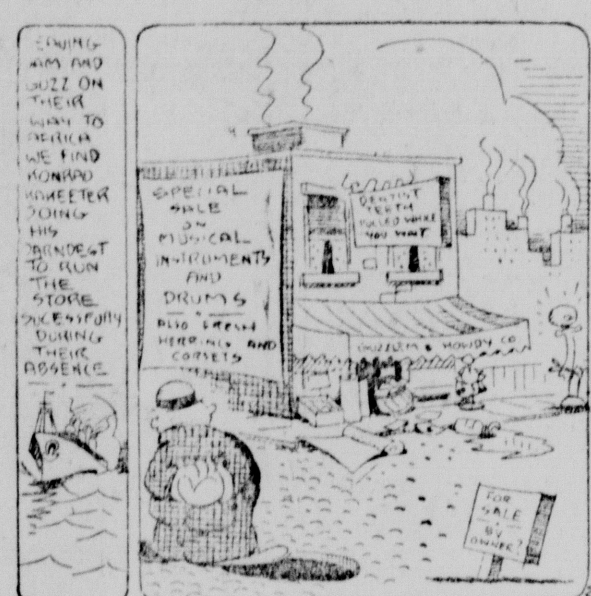 AND
GUZZ ON
THEIR
WAY TO
AFRICA
WE FIND
KONRAD
DOING
HIS
TO RUN
THE
STORE
SUCESSFULLY
DURING
THEIR
ABSENCE
SPECIAL
SALE
ON
MUSICAL
INSTRUMENTS
AND
DRUMS
ALSO FRESH
HERRINGS AND
CORSETS
DENTIST
TEETH
PULLED WHILE
YOU WAIT
& HOWDY CO
FOR
SALE
BY
OWNER?